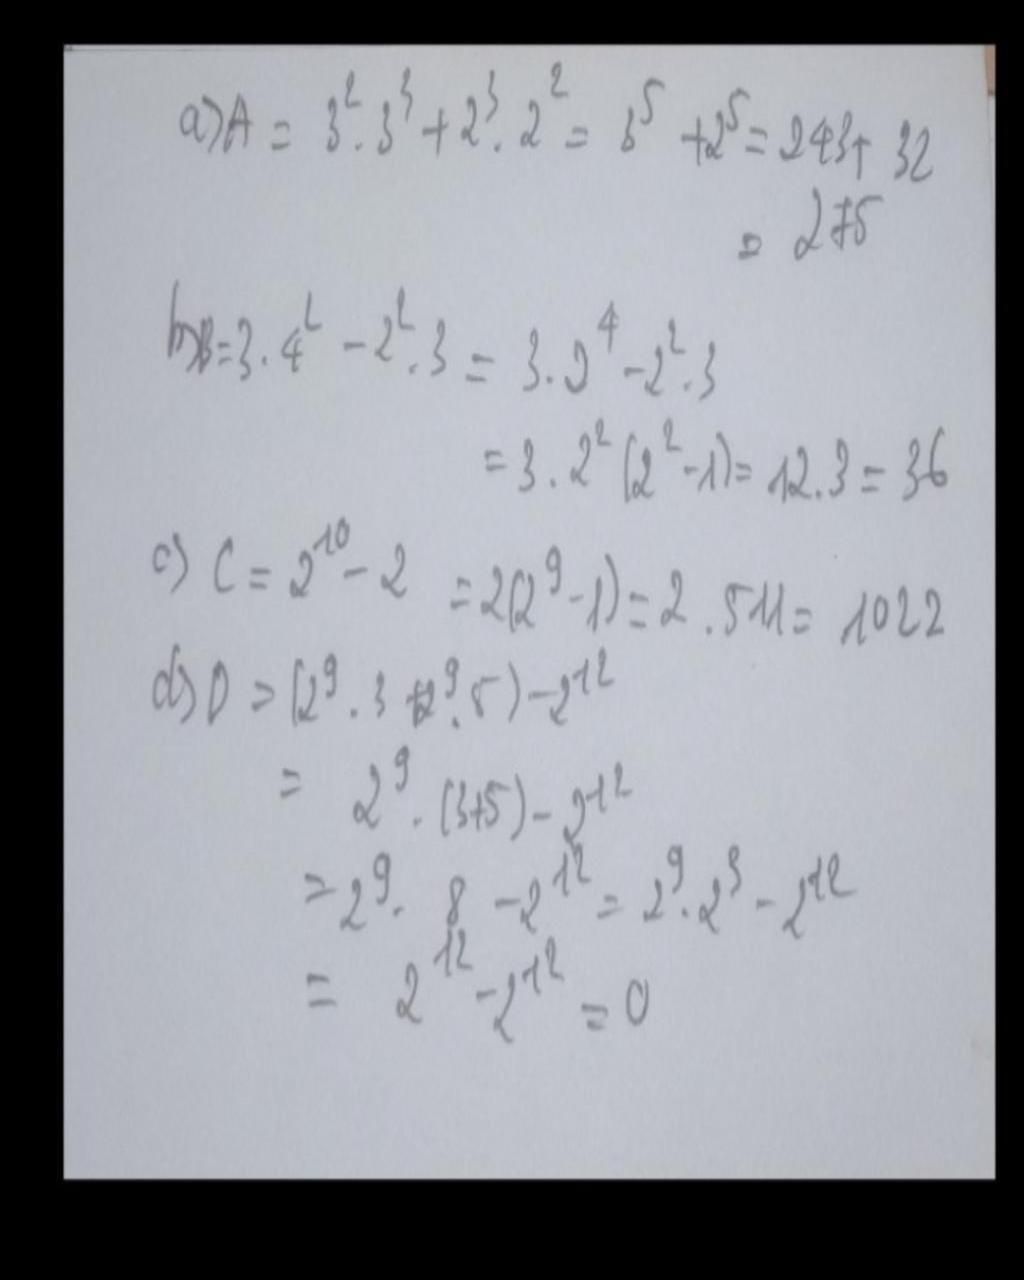 a) A = 3². 3³ + 2³. 2² = 3⁵ + 2⁵ = 243 + 32
= 275
b) B = 3. 4² - 2². 3 = 3. 2⁴ - 2². 3
= 3. 2² (2² - 1) = 12. 3 = 36
c) C = 2¹⁰ - 2 = 2(2⁹ - 1) = 2. 511 = 1022
d) D = (2⁹. 3 + 2⁹. 5) - 2¹²
= 2⁹. (3+5) - 2¹²
= 2⁹. 8 - 2¹² = 2⁹. 2³ - 2¹²
= 2¹² - 2¹² = 0